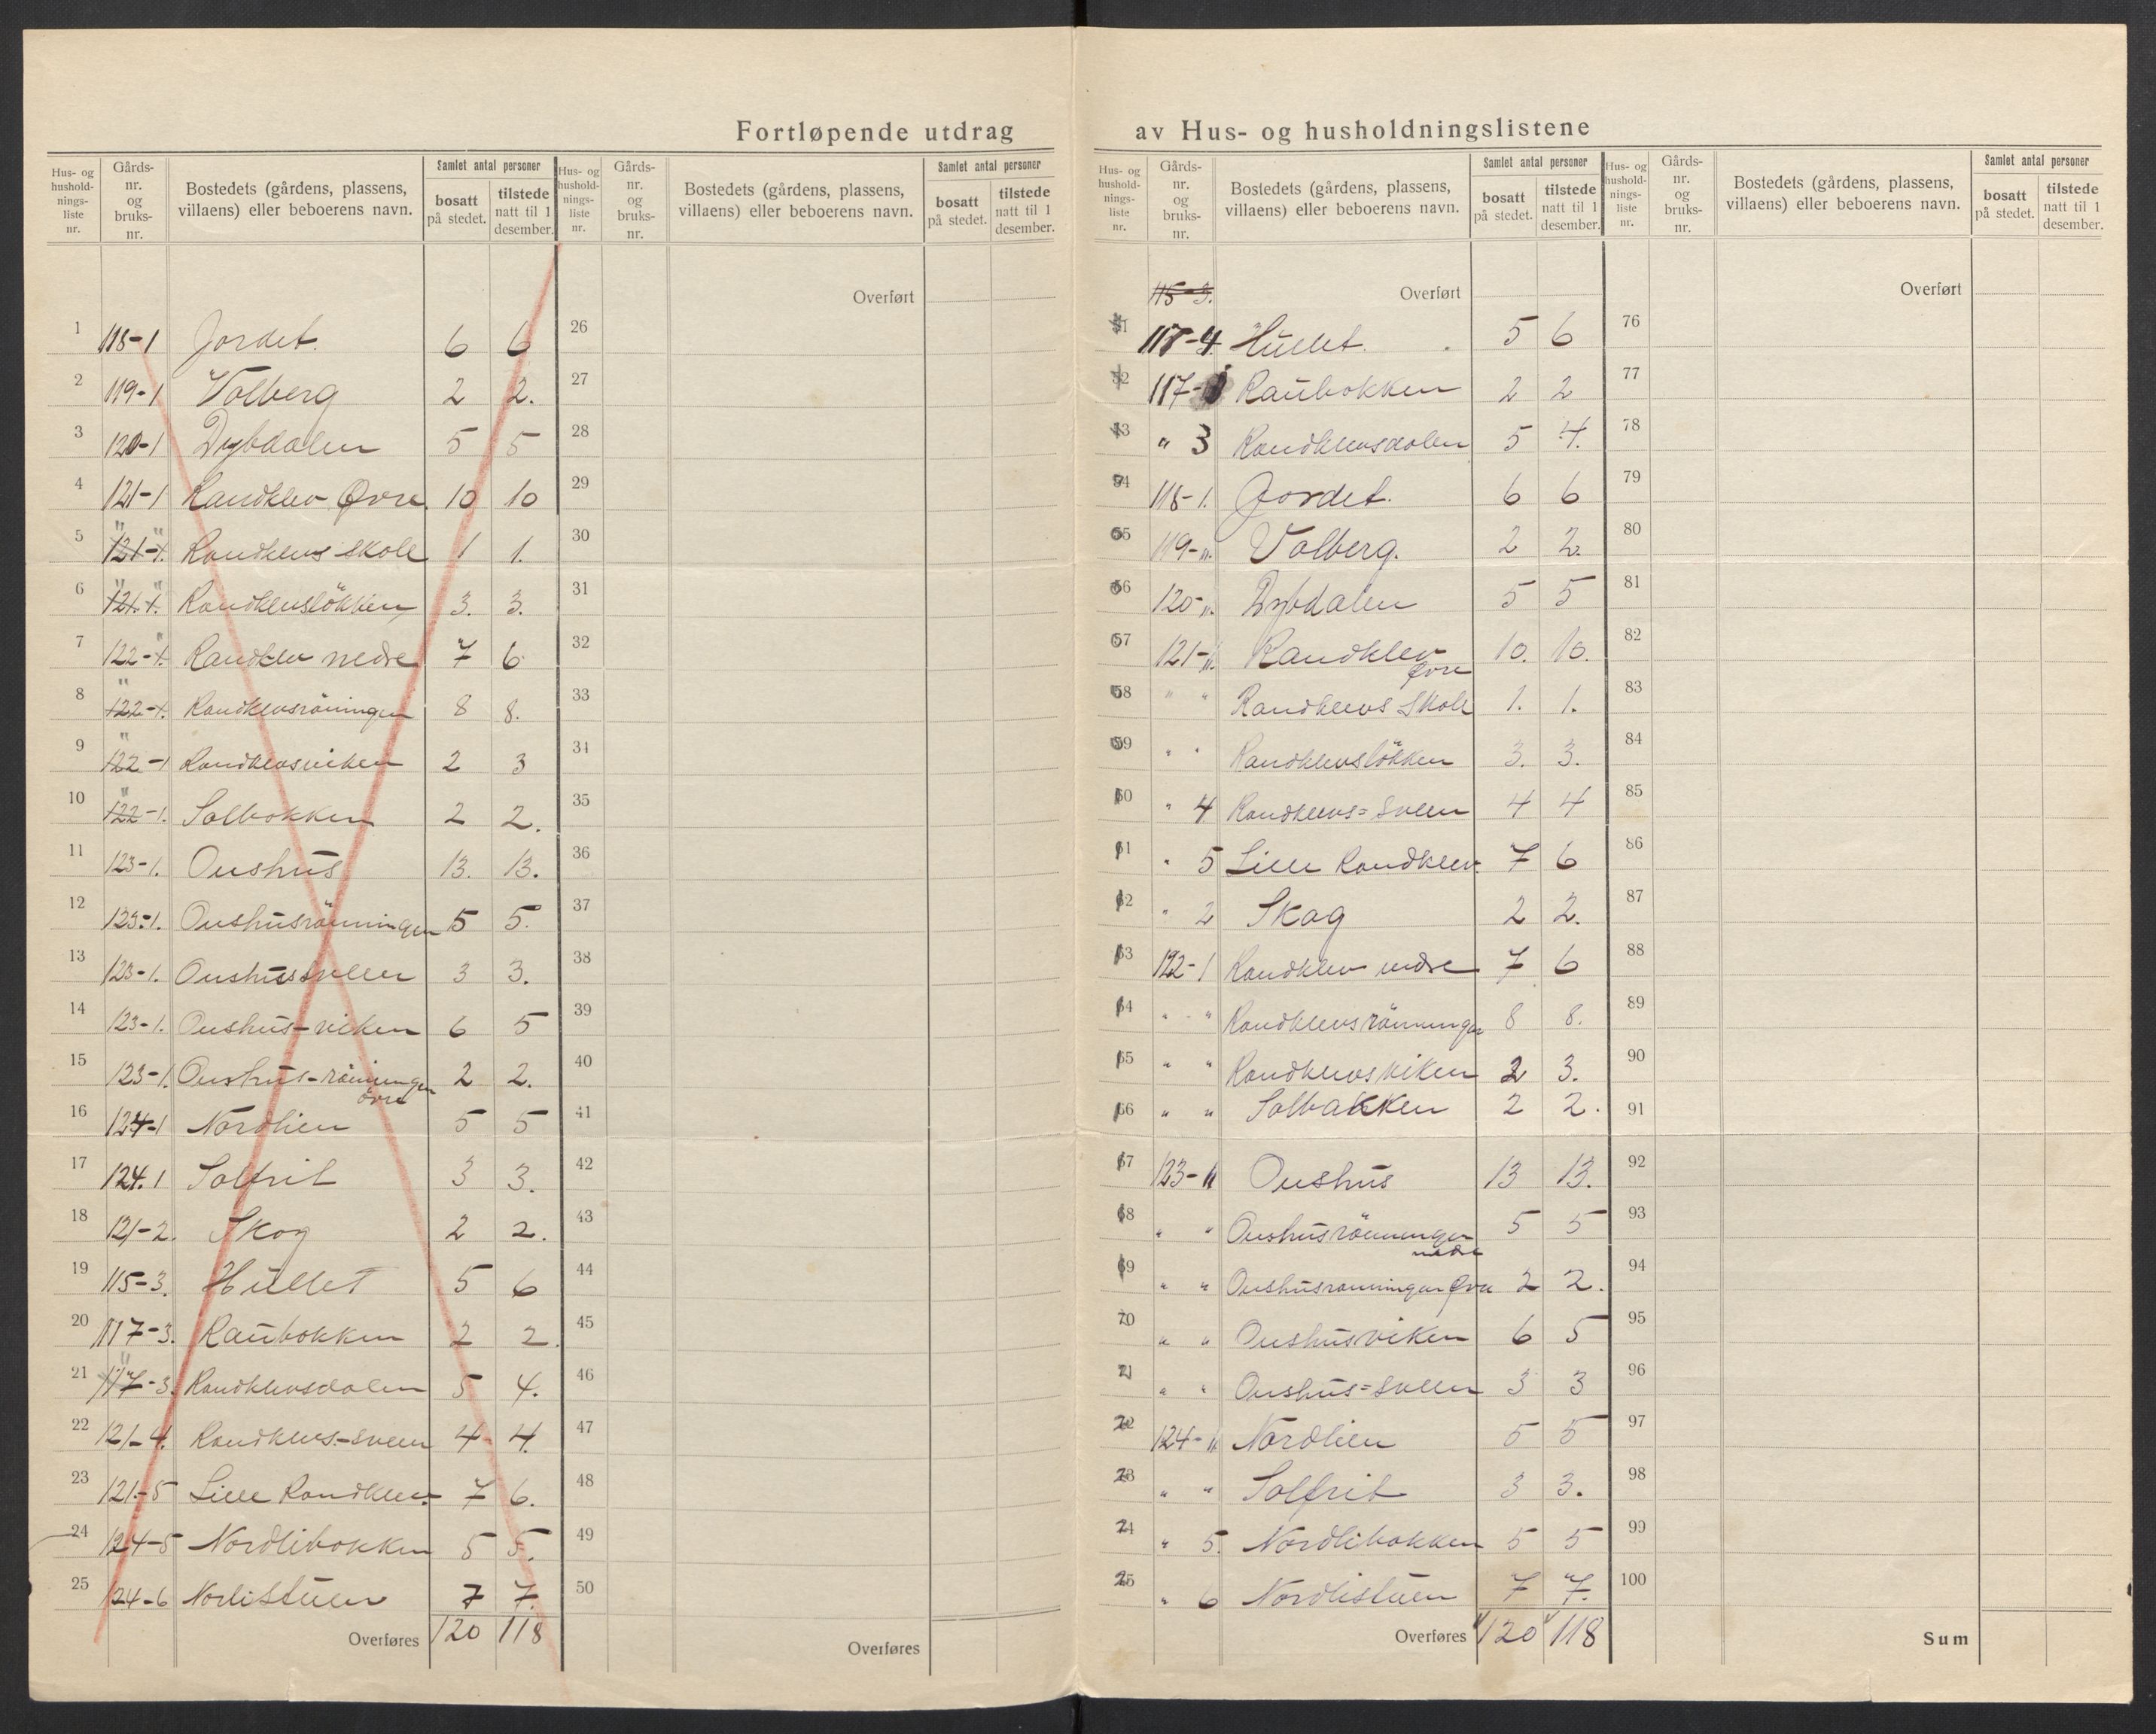 Fortløpende utdrag av Hus- og husholdningslistene
Hus- og husholdningsliste nr. | Gårds-nr. og bruks-nr. | Bostedets (gårdens, plassens, villaens) eller beboerens navn. | Samlet antal personer | bosatt på stedet. | tilstede natt til 1 desember.
1 118-1 Jordet. 6 6
2 119-1 Volberg 2 2.
3 120-1 Dybdalen 5 5
4 121-1 Randklev Øvre 10 10
5 121-1. Randklevs skole 1 1.
6 121.1. Randklevsløkken 3. 3.
7 122-1. Randklev nedre 7 6
8 122-1. Randklevsrøningen 8 8.
9 122-1 Randklevsviken 2 3
10 122-1. Solbakken 2 2.
11 123-1. Oushus 13. 13.
12 123-1. Oushusrønningen 5 5.
13 123-1. Oushussveen 3 3.
14 123-1. Oushus-viken 6 5
15 123-1. Oushus-rønningen øvre 2 2.
16 124-1 Nordlien 5 5
17 124.1 Solfrit 3 3.
18 121-2. Skog 2 2.
19 115-3. Hullet 5 6
20 117-3. Raubakken 2 2.
21 117-3. Randklevsdalen 5 4.
22 121-4. Randklevs-sveen 4 4.
23 121-5 Lille Randklev 7 6.
24 124-5 Nordlibakken 5 5.
25 124-6 Norlistuen 7 7.
Overføres 120 118
Hus- og husholdningsliste nr. | Gårds-nr. og bruks-nr. | Bostedets (gårdens, plassens, villaens) eller beboerens navn. | Samlet antal personer | bosatt på stedet. | tilstede natt til 1 desember.
Overført
26
27
28
29
30
31
32
33
34
35
36
37
38
39
40
41
42
43
44
45
46
47
48
49
50
Overføres
Hus- og husholdningsliste nr. | Gårds-nr. og bruks-nr. | Bostedets (gårdens, plassens, villaens) eller beboerens navn. | Samlet antal personer | bosatt på stedet. | tilstede natt til 1 desember.
115-3. Overført
1 -4. Hullet. 5 6
2 117- Raubakken 2 2
3 " 3 Randklevsdalen 5 4.
4 118-1. Jordet. 6 6
5 119-". Volberg. 2 2.
6 120-". Dybdalen 5 5
7 121-". Randklev Øvre 10. 10.
8 " " Randklevs Skole 1. 1.
9 " " Randklevsløkken 3. 3.
10 " 4 Randklevs=Sveen 4 4
11 " 5 Lille Randklev. 7 6
12 " 2 Skog 2 2.
13 122-1 Randklev nedre 7 6
14 " " Randklevsrønningen 8 8.
15 " " Randklevsviken 2 3.
16 " " Solbakken 2 2.
17 123-" Oushus 13 13.
18 " " Oushusrønningen nedre 5 5
19 " " Oushusrønningen Øvre 2 2.
20 " " Oushusviken 6 5
21 " " Oushus=sveen 3 3
22 124-" Nordlien 5 5
23 " " Solfrit 3 3.
24 " 5. Nordlibakken 5 5
25 " 6 Nordlistuen 7 7.
Overføres 120 118
Hus- og husholdningsliste nr. | Gårds-nr. og bruks-nr. | Bostedets (gårdens, plassens, villaens) eller beboerens navn. | Samlet antal personer | bosatt på stedet. | tilstede natt til 1 desember.
Overført
76
77
78
79
80
81
82
83
84
85
86
87
88
89
90
91
92
93
94
95
96
97
98
99
100
Sum